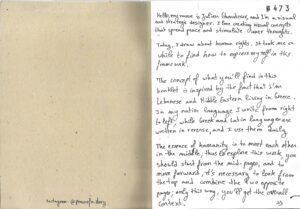 #473
Hello, my name is Julien Ghandour, and I'm a visual
and strategic designer. I love creating visual concepts
that spread peace and stimulate inner thoughts.
Today, I draw about human rights. It took me a
while to find how to express myself in this
framework.
The concept of what you'll find in this
booklet is inspired by the fact that I'm
Lebanese and Middle Eastern living in Greece.
In my native language I write from right
to left, while Greek and Latin languages are
written in reverse, and I use them daily.
The essence of humanity is to meet each other
in the middle; thus to explore this work, you
should start from the mid-pages, and to
move forward, it's necessary to look from
the top and combine the two opposite
pages; only this way you'll get the overall
context.
Instagram